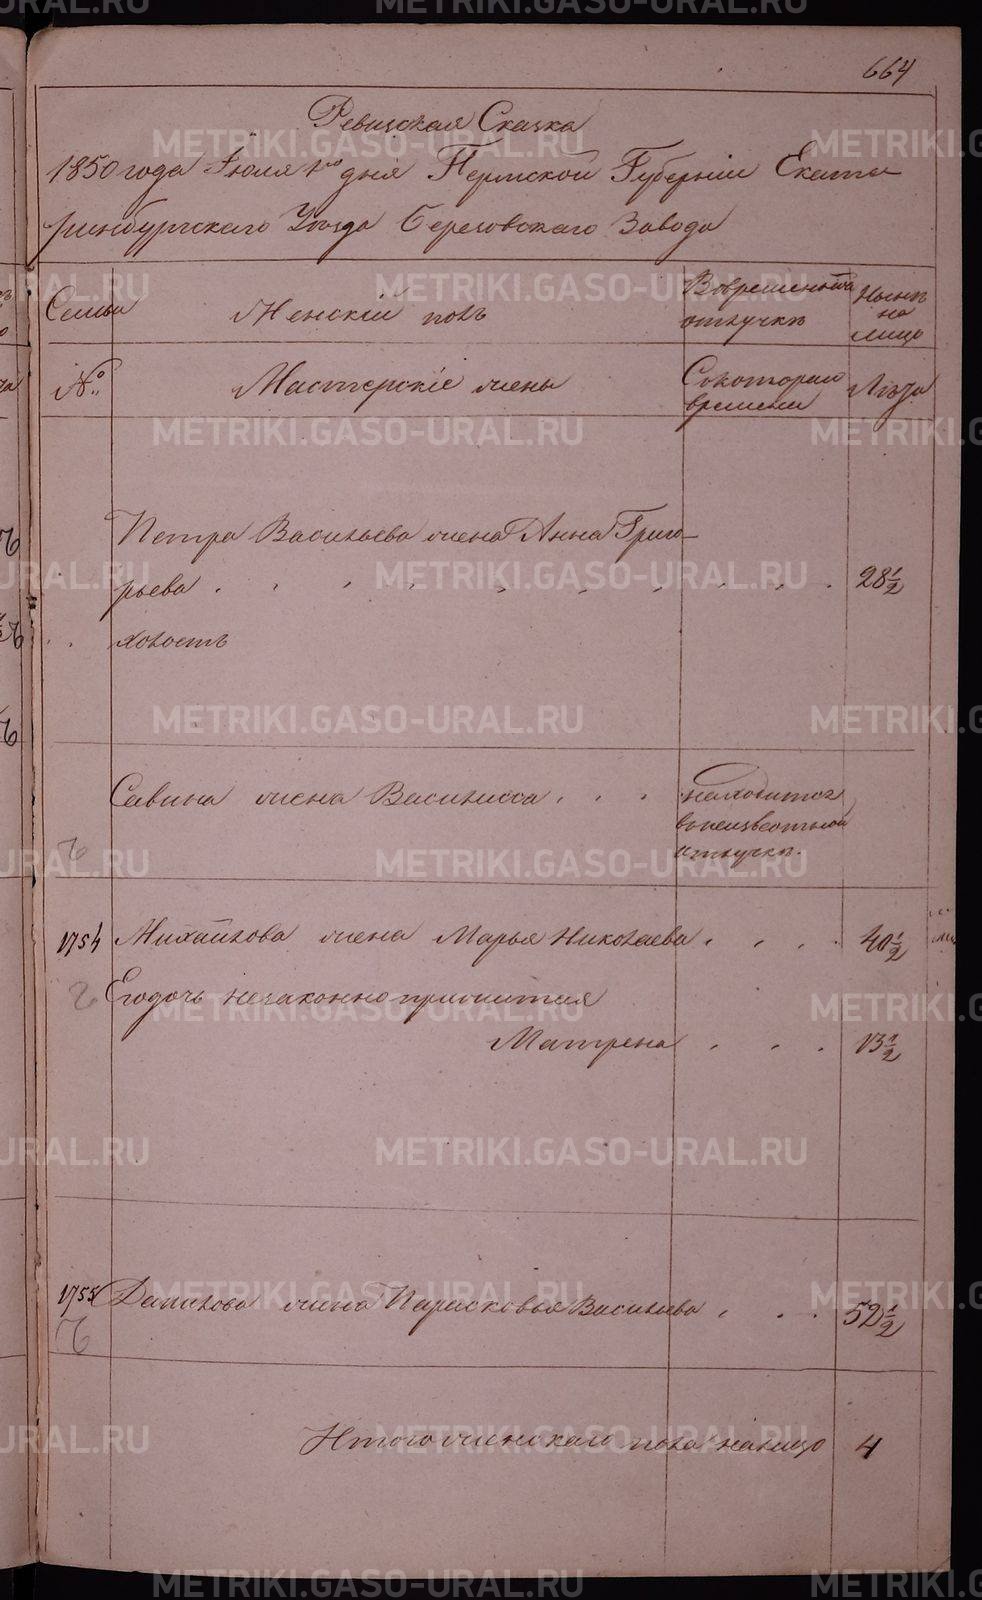 664
Ревизская Сказка
1850 года Июля 1го дня Пермской Губернiи Екате-
ринбургскаго Уѣзда Березовскаго Завода
Семьи
Женскiй полъ
Вовременной
отлучкѣ
Нынѣ
на
лицо
№
Мастерскiе жены
Скотораго
времени
Лѣта
Петра Васильева жена Анна Григо-
рьева 28½
холостъ
Савина жена Василисса
находится
въ неизвестной
отлучкѣ.
1754 Михайлова жена Марья Николаева 40½
Егодочь незаконно прижитая
Матрена 13½
1755 Данилова жена Парасковья Васильева 52½
Итого женскаго пола налицо 4
METRIKI.GASO-URAL.RU